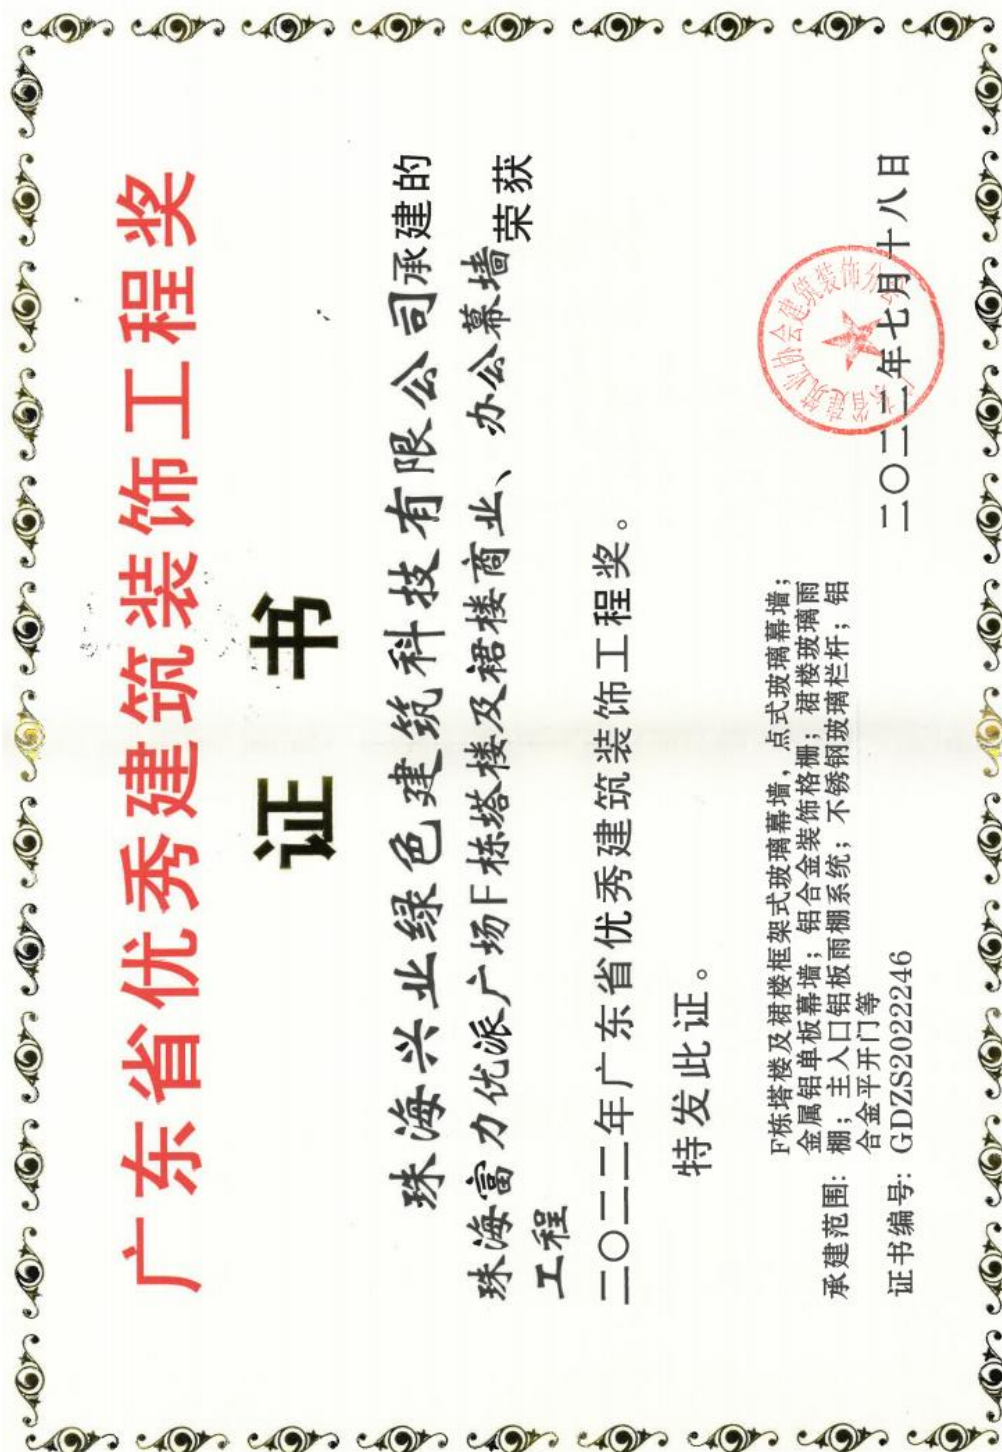 广东省优秀建筑装饰工程奖
证书
珠海兴业绿色建筑科技有限公司承建的
珠海富力优派广场F栋塔楼及裙楼商业、办公幕墙荣获
工程
二〇二二年广东省优秀建筑装饰工程奖。
特发此证。
F栋塔楼及裙楼框架式玻璃幕墙，点式玻璃幕墙；
金属铝单板幕墙；铝合金装饰格栅；裙楼玻璃雨
承建范围：棚；主入口铝板雨棚系统；不锈钢玻璃栏杆；铝
合金平开门等
证书编号：GDZS2022246
广东省建筑业协会建筑装饰分会
二〇二二年七月十八日